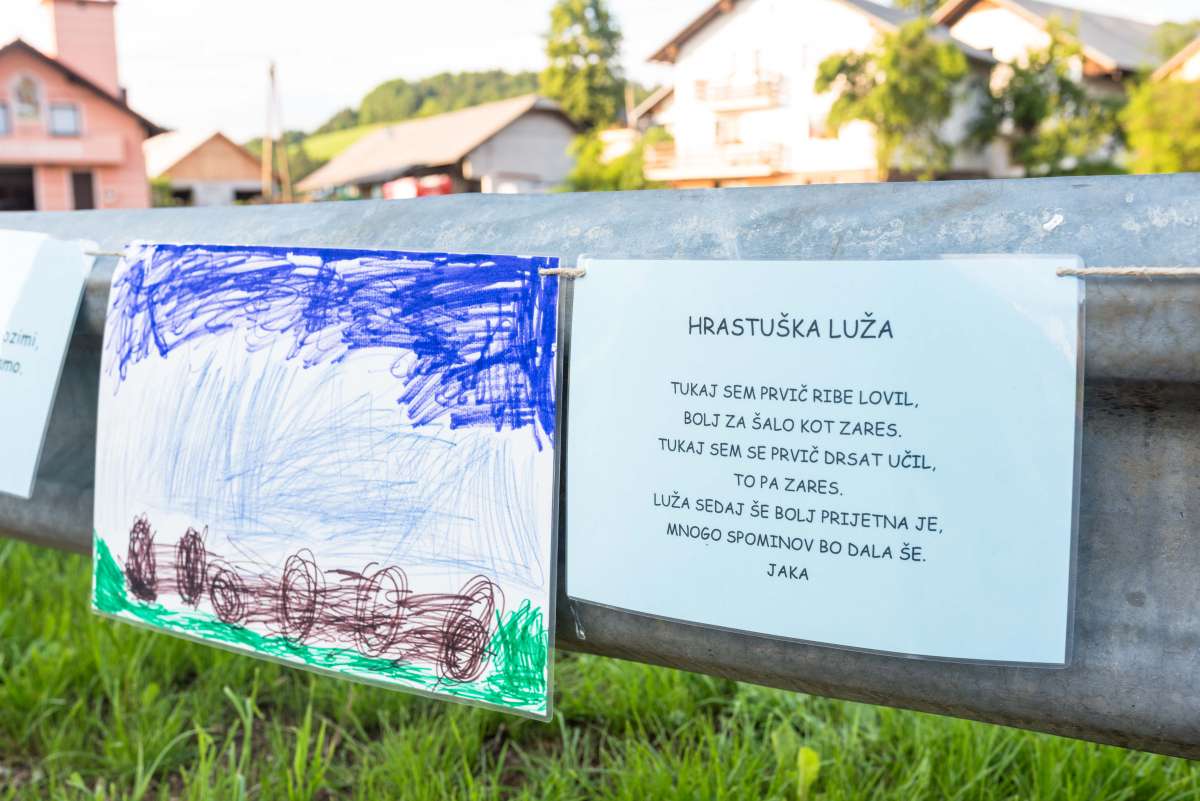 ozimi,
mo.
HRASTUŠKA LUŽA
TUKAJ SEM PRVIČ RIBE LOVIL,
BOLJ ZA ŠALO KOT ZARES.
TUKAJ SEM SE PRVIČ DRSAT UČIL,
TO PA ZARES.
LUŽA SEDAJ ŠE BOLJ PRIJETNA JE,
MNOGO SPOMINOV BO DALA ŠE.
JAKA